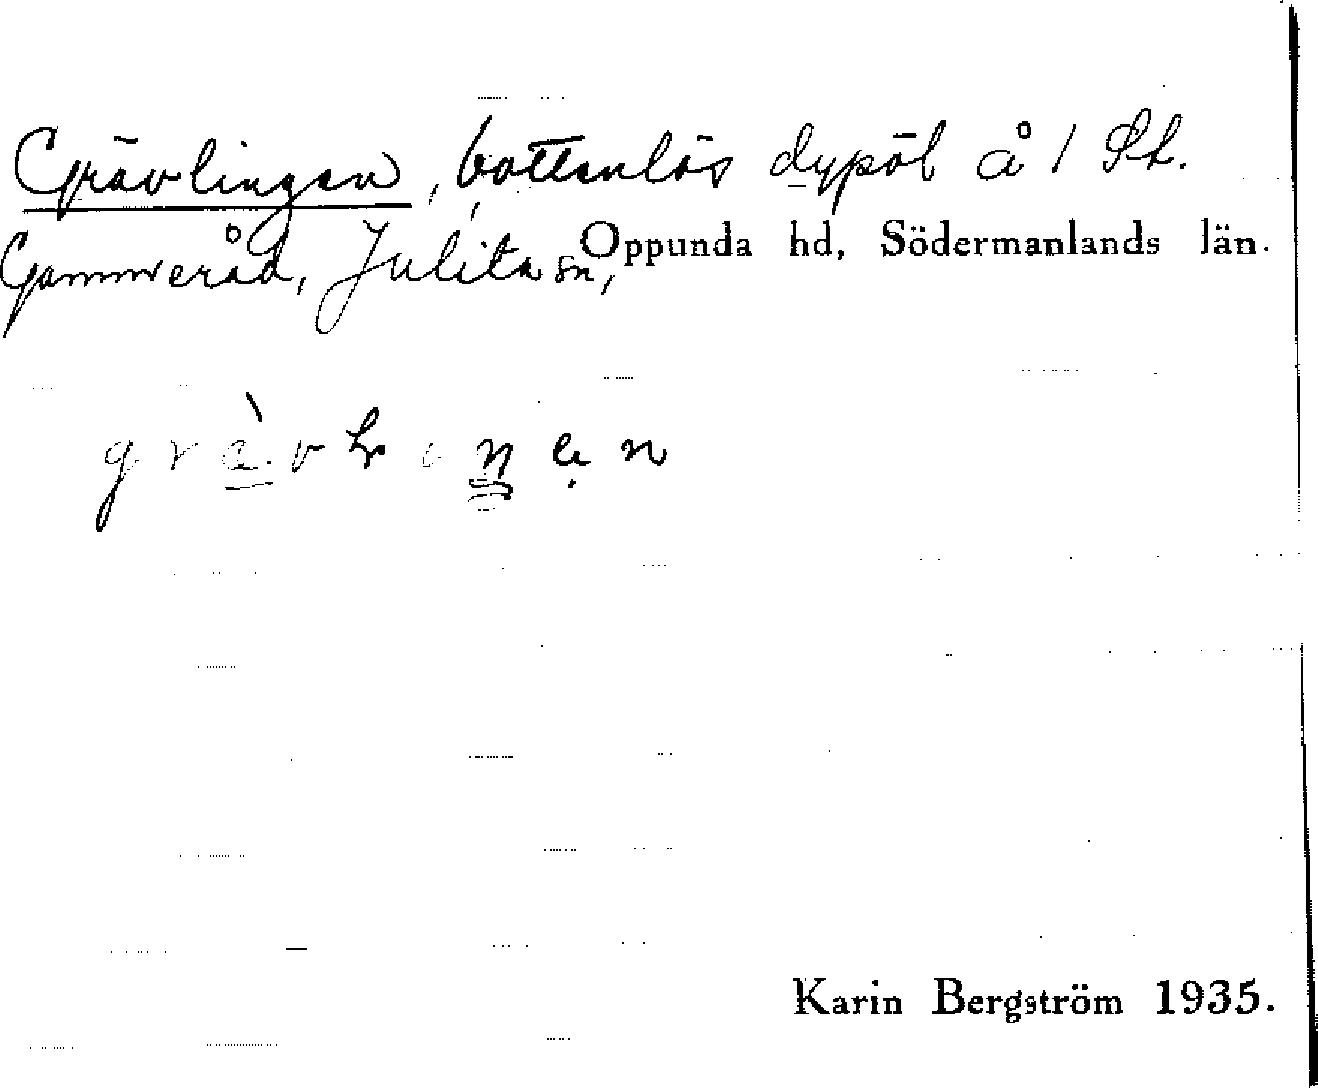 Grävlingen, bottenlös dypöl å 1 St.
Gammeråd, Julita sn, Oppunda hd, Södermanlands län.
Karin Bergström 1935.